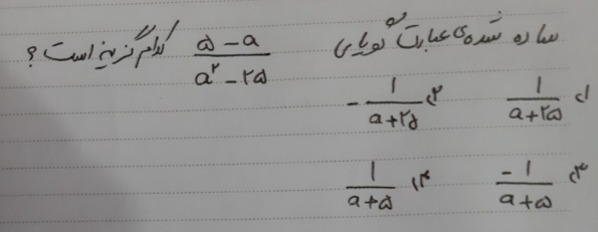 ساده شده‌ی عبارت گویای (۵ - a)/(a² - ۲۵) کدام گزینه است؟
۱) 1/(a+۲۵) ۲) - 1/(a+۲۵)
۳) -1/(a+۵) ۴) 1/(a+۵)